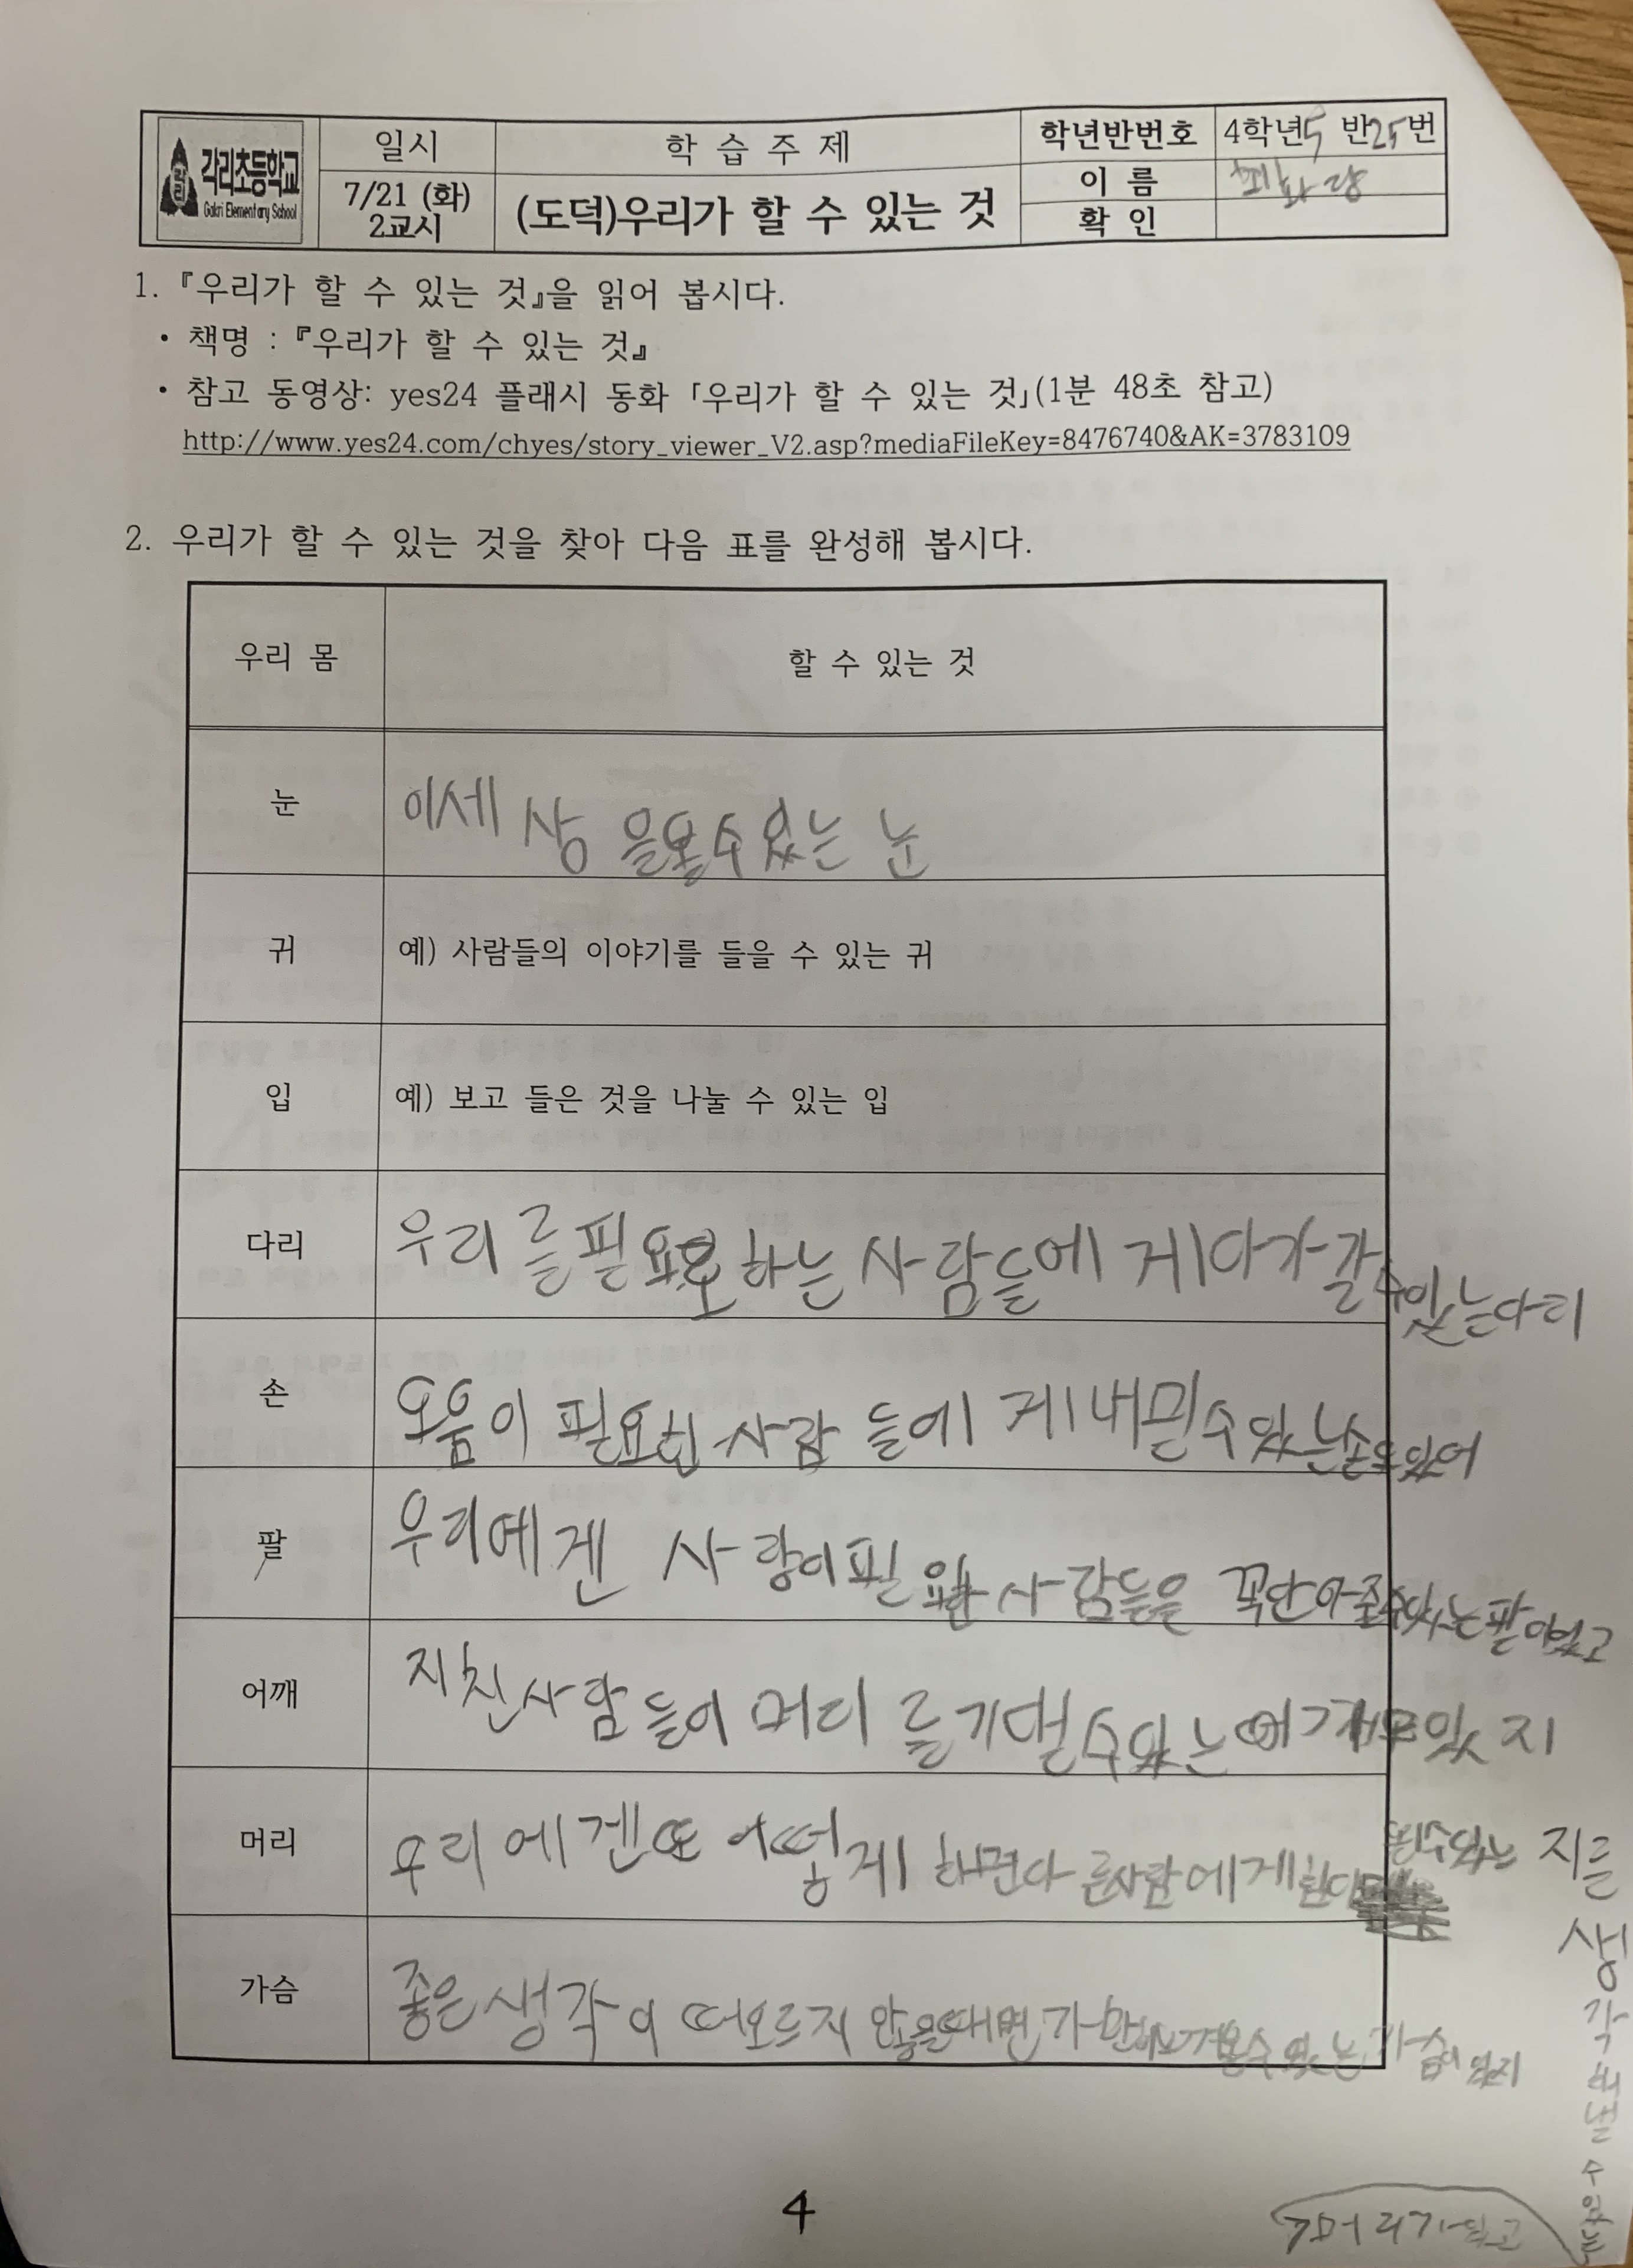 각리초등학교
각리
Gakri Elementary School
일시
학 습 주 제
학년반번호
4학년5 반25번
7/21 (화)
2교시
(도덕)우리가 할 수 있는 것
이 름
확 인
1. 『우리가 할 수 있는 것』을 읽어 봅시다.
• 책명 : 『우리가 할 수 있는 것』
• 참고 동영상: yes24 플래시 동화 「우리가 할 수 있는 것」(1분 48초 참고)
http://www.yes24.com/chyes/story_viewer_V2.asp?mediaFileKey=8476740&AK=3783109
2. 우리가 할 수 있는 것을 찾아 다음 표를 완성해 봅시다.
우리 몸
할 수 있는 것
눈
이세상을볼수있는 눈
귀
예) 사람들의 이야기를 들을 수 있는 귀
입
예) 보고 들은 것을 나눌 수 있는 입
다리
우리를필요로하는 사람들에게다가갈수있는다리
손
도움이 필요한 사람들에게내밀수있는손도있어
팔
우리에겐 사랑이필요한 사람들은 꼭안아줄수있는팔이있고
어깨
지친사람들이 머리를기댈수있는어깨도있지
머리
우리에겐또 어떻게 하면다른사람에게힘이
될수있는지를
생각해낼수있는
머리가있고
가슴
좋은생각이 떠오르지 않을때면 가만히느껴볼수있는가슴이있지
4